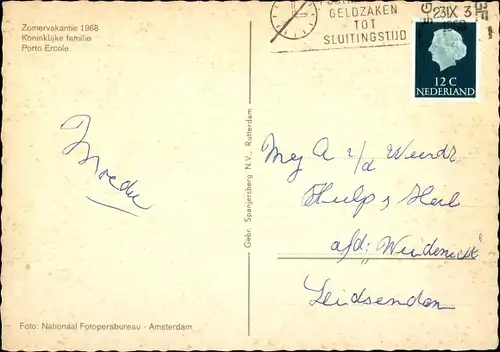 Zomervakantie 1968
Koninklijke familie
Porto Ercole
GELDZAKEN
TOT
SLUITINGSTIJD
23 IX 3
1968
12 C
NEDERLAND
Gebr. Spanjersberg N.V., Rotterdam
Moeder
Mej A v/d Weerdt
Hulp &
afd:
Leidsendam
Foto: Nationaal Fotopersbureau - Amsterdam